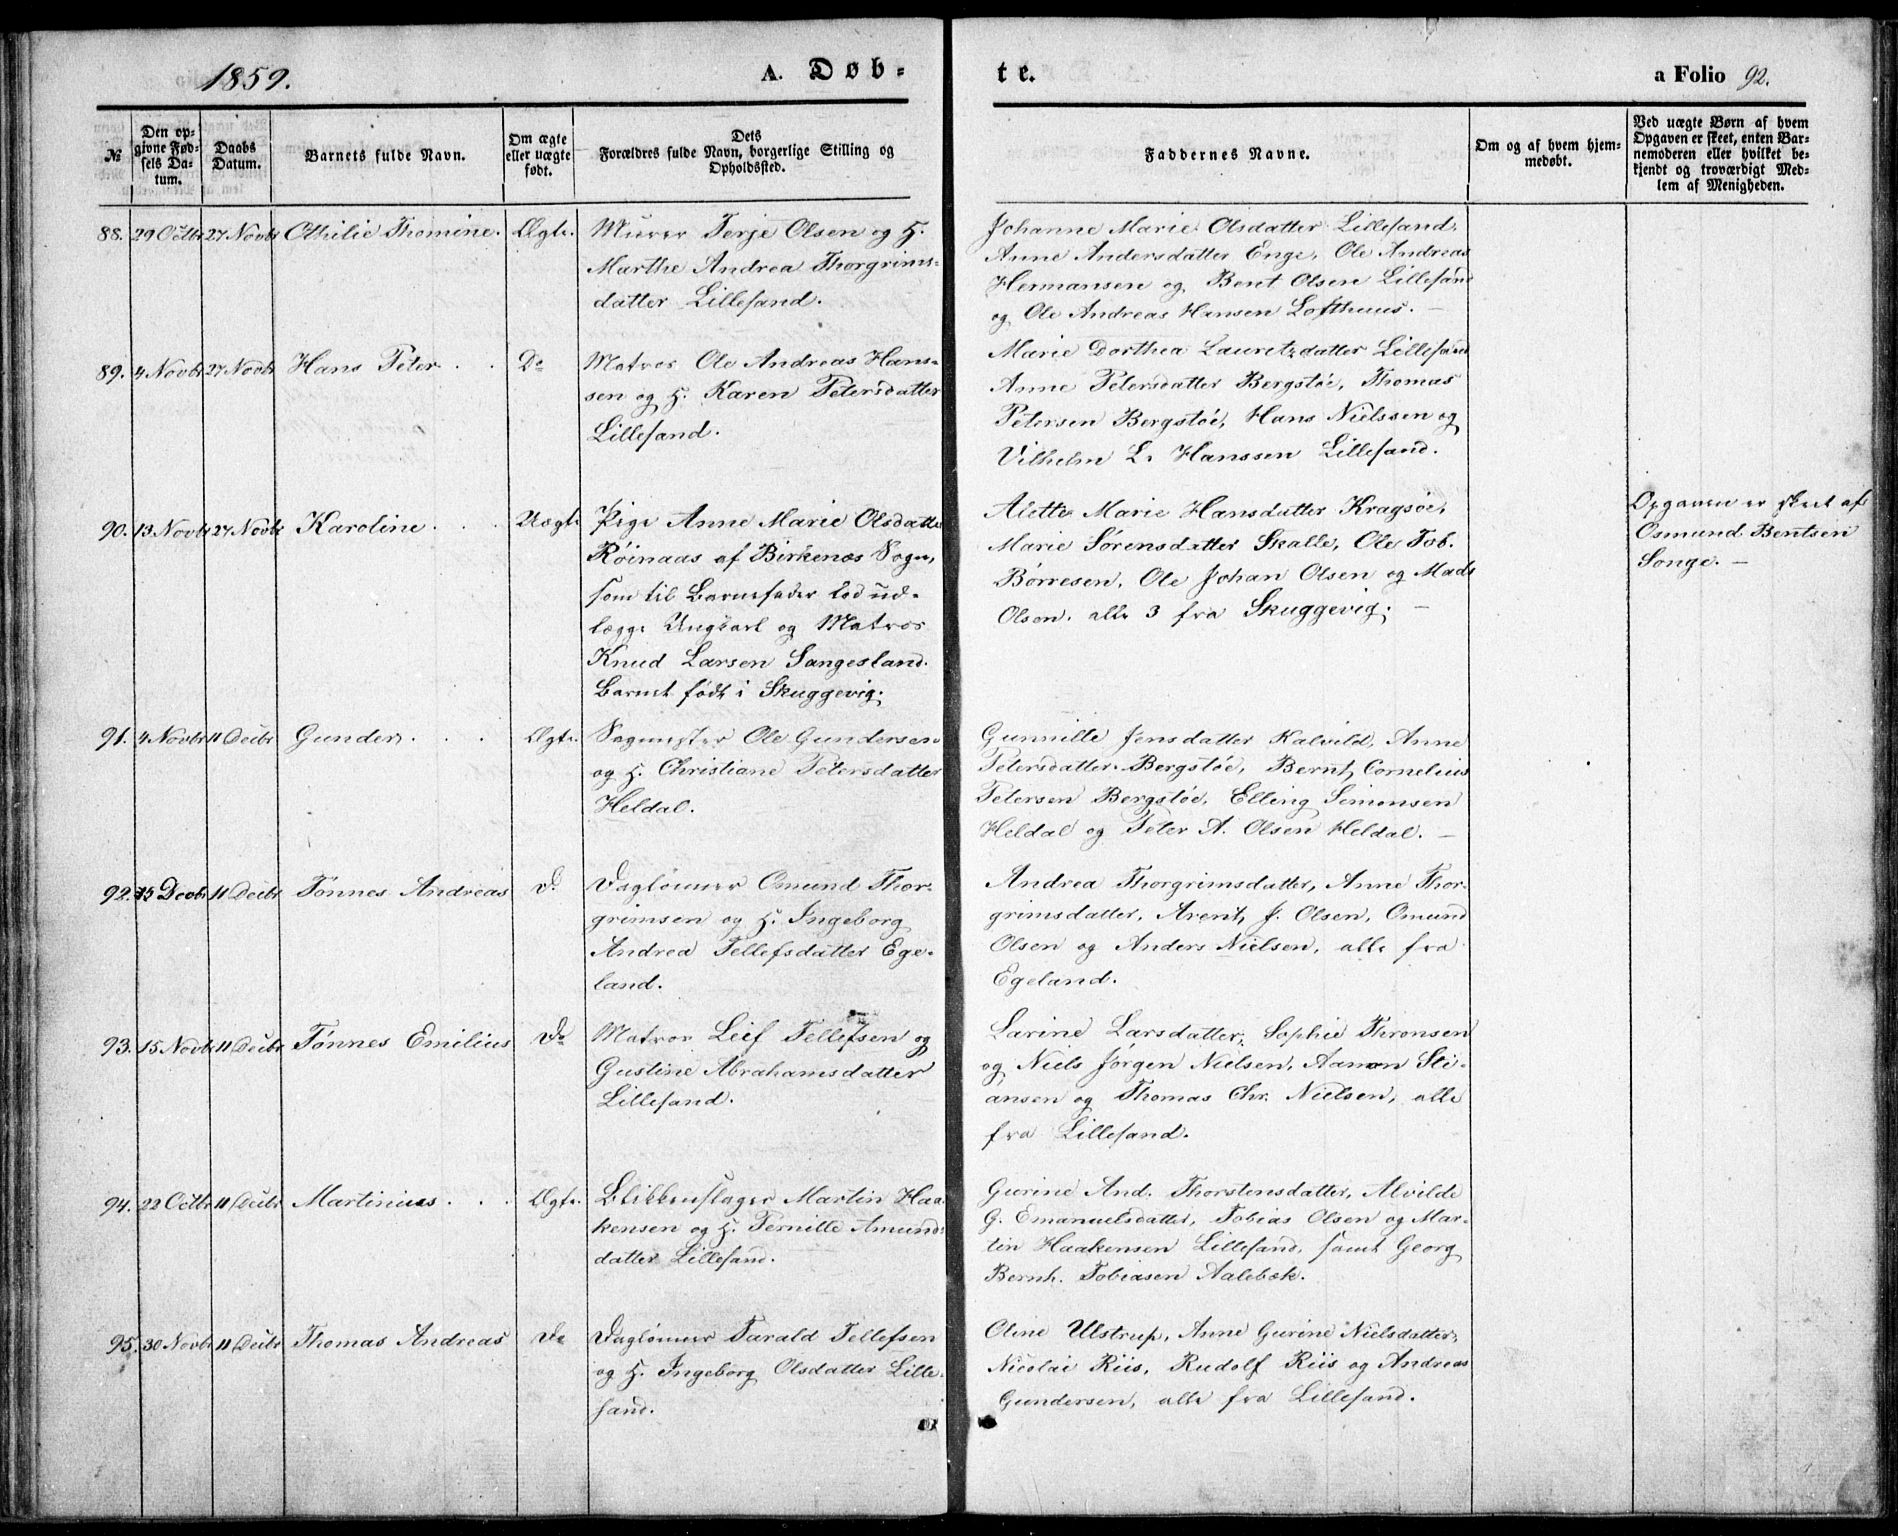 1859.
A. Døb-
te.
a Folio 92.
№
Den op-
givne Fød-
sels Da-
tum.
Daabs
Datum.
Barnets fulde Navn.
Om ægte
eller uægte
født.
Dets
Forældres fulde Navn, borgerlige Stilling og
Opholdssted.
Faddernes Navne.
Om og af hvem hjem-
medøbt.
Ved uægte Børn af hvem
Opgaven er skeet, enten Bar-
nemoderen eller hvilket be-
kjendt og troværdigt Med-
lem af Menigheden.
88. 29 Octbr 27 Novbr Othilie Thomine. Ægte. Murer Terje Olsen og H.
Marthe Andrea Thorgrims-
datter Lillesand.
Johanne Marie Olsdatter Lillesand,
Anne Andersdatter Enge, Ole Andreas
Hermansen og Bent Olsen Lillesand
og Ole Andreas Hansen Lofthuus. —
89. 4 Novbr 27 Novbr Hans Peter. Do Matros Ole Andreas Hans-
sen og H. Karen Petersdatter
Lillesand.
Marie Dorthea Lauritzdatter Lillesand
Anne Petersdatter Bergstøe, Thomas
Petersen Bergstøe, Hans Nielssen og
Vilhelm L. Hanssen Lillesand.
90. 13 Novbr 27 Novbr Karoline. Uægte Pige Anne Marie Olsdatter
Røinaas af Birkenæs Sogn,
som til Barnefader lod ud-
lægge Ungkarl og Matros
Knud Larsen Sangesland.
Barnet født i Skuggevig.
Alette Marie Hansdatter Kragsøe,
Marie Sørensdatter Skalle, Ole Tob.
Børresen, Ole Johan Olsen og Mads
Olsen, alle 3 fra Skuggevig. —
Opgaven er skeet af
Osmund Bentsen
Songe. —
91. 4 Novbr 11 Decbr Gunder. Ægte. Sagmester Ole Gundersen
og H. Christiane Petersdatter
Heldal.
Gunnille Jensdatter Kalvild, Anne
Petersdatter Bergstøe, Bernt Cornelius
Petersen Bergstøe, Elling Simonsen
Heldal og Peter A. Olsen Heldal. —
92. 15 Decbr 11 Decbr Tønnes Andreas Do Daglønner Omund Thor-
grimsen og H. Ingeborg
Andrea Tellefsdatter Ege-
land.
Andrea Thorgrimsdatter, Anne Thor-
grimsdatter, Arent J. Olsen, Omund
Olsen og Anders Nielsen, alle fra
Egeland.
93. 15 Novbr 11 Decbr Tønnes Emilius Do Matros Leif Tellefsen og
Gustine Abrahamsdatter
Lillesand.
Larine Larsdatter, Sophie Thronsen
og Niels Jørgen Nielsen, Aamon Sti-
ansen og Thomas Chr. Nielsen, alle
fra Lillesand.
94. 22 Octbr 11 Decbr Martinius. Ægte. Blikkenslager Martin Haa-
kensen og H. Pernille Amunds-
datter Lillesand.
Gurine And. Thorstensdatter, Alvilde
G. Emanuelsdatter, Tobias Olsen og Mar-
tin Haakensen Lillesand, samt Georg
Bernh. Tobiasen Aalebæk.
95. 30 Novbr 11 Decbr Thomas Andreas Do Daglønner Tarald Tellefsen
og H. Ingeborg Olsdatter Lille-
sand.
Oline Ulstrup, Anne Gurine Nielsdatter,
Nicolai Riis, Rudolf Riis og Andreas
Gundersen, alle fra Lillesand.